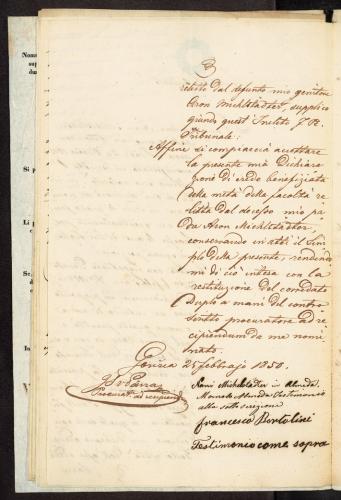 3
relitto dal defunto mio genitore
Aron Michlstädter, supplico
quest' Inclito I. R.
Tribunale:
Affine si compiaccia accettare
la presente mia dichiara
zione di erede benefiziata
della metà della facoltà re
litta dal decesso mio pa
dre Aron Michlstädter,
conservando in atti il Sim
plo della presente, rendendo
mi di ciò intesa con la
restituzione del comidato
Duplo a mani del contro
firmato procuratore ad re
cipiendum da me nomi
nato.
Gorizia 25 febbrajo 1850.
Procurat. ad recipiend.
Nani Michlstädter in Almeda
Almeda Testimonio
alla sottoscrizione
Francesco Bortolini
Testimonio come sopra
Si p
Li p
In